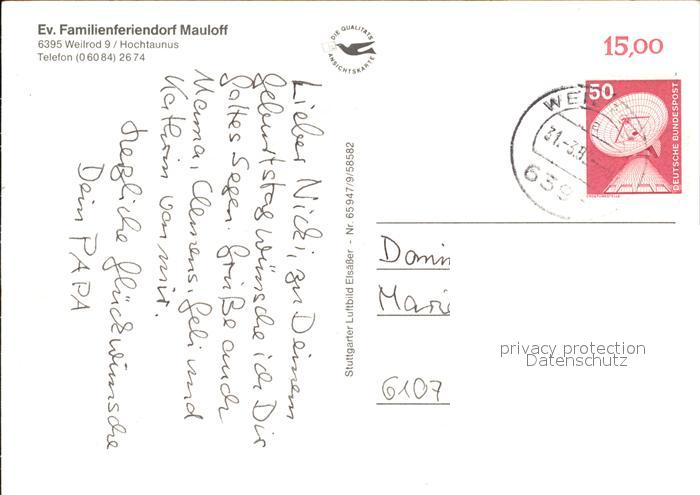 Ev. Familienferiendorf Mauloff
6395 Weilrod 9 / Hochtaunus
Telefon (0 60 84) 26 74
DIE QUALITÄTS
ANSICHTSKARTE
15,00
50
DEUTSCHE BUNDESPOST
WEIL
31.-3.8
639
Lieber Nicki, zu Deinem
Geburtstag wünsche ich Dir
Gottes Segen. Grüße auch
Mama, Clemens, Geli und
Kathrin von mir.
Herzliche Glückwünsche
Dein PAPA
Stuttgarter Luftbild Elsäßer - Nr. 65947/9/58582
Domin
Mari
6107
privacy protection
Datenschutz